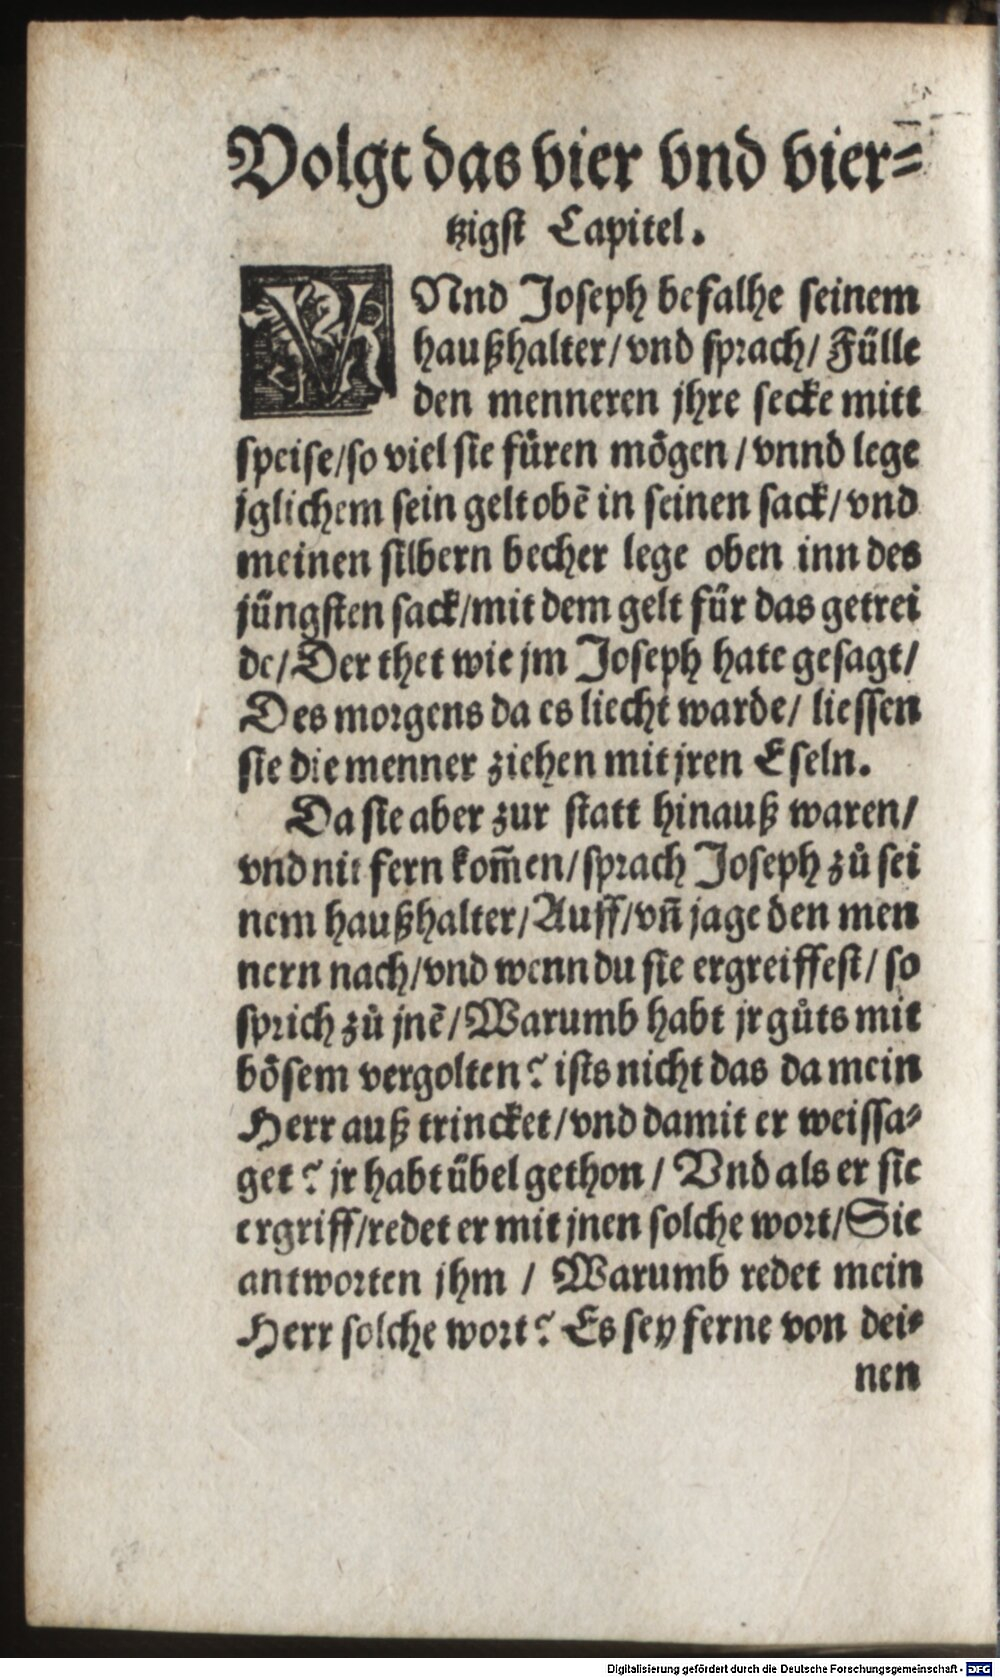 Volgt das vier vnd vier⸗
tzigst Capitel.
VNnd Joseph befalhe seinem
haußhalter/ vnd sprach/ Fülle
den menneren jhre secke mitt
speise/so viel sie fůren mögen / vnnd lege
jglichem sein gelt obẽ in seinen sack/ vnd
meinen silbern becher lege oben inn des
jüngsten sack/mit dem gelt für das getrei
de/ Der thet wie jm Joseph hate gesagt/
Des morgens da es liecht warde/ liessen
sie die menner ziehen mit jren Eseln.
Da sie aber zur statt hinauß waren/
vnd nit fern kom̃en/ sprach Joseph zů sei
nem haußhalter/ Auff/ vñ jage den men
nern nach/vnd wenn du sie ergreiffest/ so
sprich zů jnẽ/ Warumb habt jr gůts mit
bösem vergolten? ists nicht das da mein
Herr auß trincket/ vnd damit er weissa⸗
get? jr habt übel gethon / Vnd als er sie
ergriff/redet er mit jnen solche wort/ Sie
antworten jhm / Warumb redet mein
Herr solche wort? Es sey ferne von dei⸗
nen
Digitalisierung gefördert durch die Deutsche Forschungsgemeinschaft - DFG